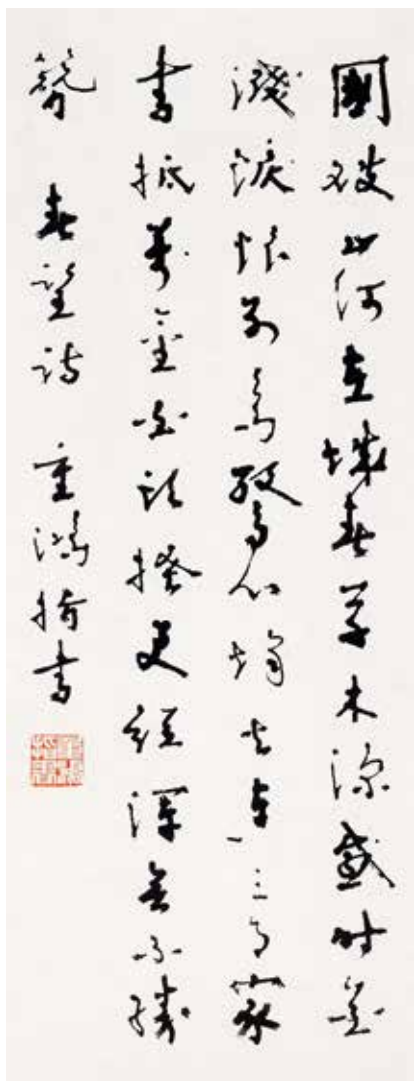 國破山河在城春草木深感時花
濺淚恨別鳥驚心烽火連三月家
書抵萬金白頭搔更短渾欲不勝
簪 春望詩 鴻 書